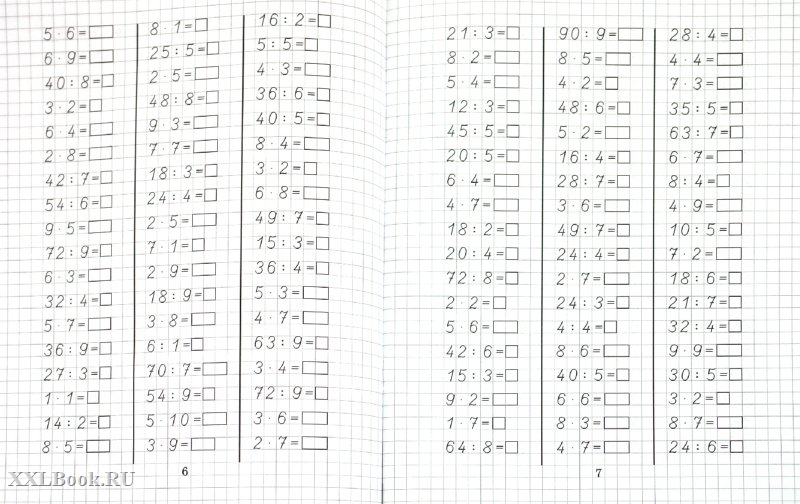 5 · 6 =
6 · 9 =
40 : 8 =
3 · 2 =
6 · 4 =
2 · 8 =
42 : 7 =
54 : 6 =
9 · 5 =
72 : 9 =
6 · 3 =
32 : 4 =
5 · 7 =
36 : 9 =
27 : 3 =
1 · 1 =
14 : 2 =
8 · 5 =
8 · 1 =
25 : 5 =
2 · 5 =
48 : 8 =
9 · 3 =
7 · 7 =
18 : 3 =
24 : 4 =
2 · 5 =
7 · 1 =
2 · 9 =
18 : 9 =
3 · 8 =
6 : 1 =
70 : 7 =
54 : 9 =
5 · 10 =
3 · 9 =
16 : 2 =
5 : 5 =
4 · 3 =
36 : 6 =
40 : 5 =
8 · 4 =
3 · 2 =
6 · 8 =
49 : 7 =
15 : 3 =
36 : 4 =
5 · 3 =
4 · 7 =
63 : 9 =
3 · 4 =
72 : 9 =
3 · 6 =
2 · 7 =
6
21 : 3 =
8 · 2 =
5 · 4 =
12 : 3 =
45 : 5 =
20 : 5 =
6 · 4 =
4 · 7 =
18 : 2 =
20 : 4 =
72 : 8 =
2 · 2 =
5 · 6 =
42 : 6 =
15 : 3 =
9 · 2 =
1 · 7 =
64 : 8 =
90 : 9 =
8 · 5 =
4 · 2 =
48 : 6 =
5 · 2 =
16 : 4 =
28 : 7 =
3 · 6 =
49 : 7 =
24 : 4 =
2 · 7 =
24 : 3 =
4 : 4 =
8 · 6 =
40 : 5 =
6 · 6 =
8 · 3 =
4 · 7 =
28 : 4 =
4 · 4 =
7 · 3 =
35 : 5 =
63 : 7 =
6 · 7 =
8 : 4 =
4 · 9 =
10 : 5 =
7 · 2 =
18 : 6 =
21 : 7 =
32 : 4 =
9 · 9 =
30 : 5 =
3 · 2 =
8 · 7 =
24 : 6 =
7
XXLBook.RU